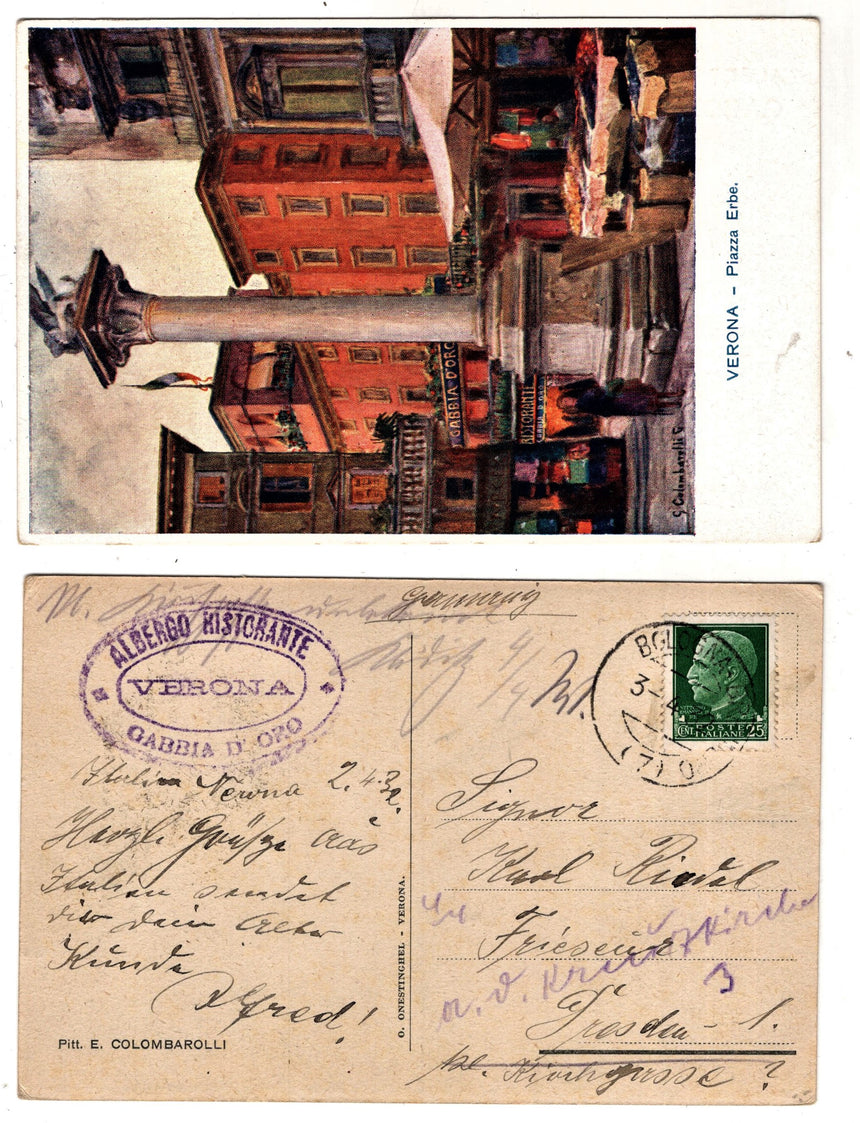 VERONA - Piazza Erbe.
GABBIA D'ORO
RISTORANTE
GABBIA D'ORO
G. Colombarolli P.
Germania
ALBERGO RISTORANTE
VERONA
GABBIA D' ORO
BOLOGNA
3-4
POSTE
ITALIANE
CENT 25
Italien Verona 2.4.32.
Herzl. Grüße aus
Italien sendet
dir dein alter
Kunde
Alfred!
Pitt. E. COLOMBAROLLI
O. ONESTINGHEL - VERONA.
Signor
Karl Riedel
Friseur
a. d. Kreuzkirche
3
Dresden - 1.
kl. Kirchgasse ?